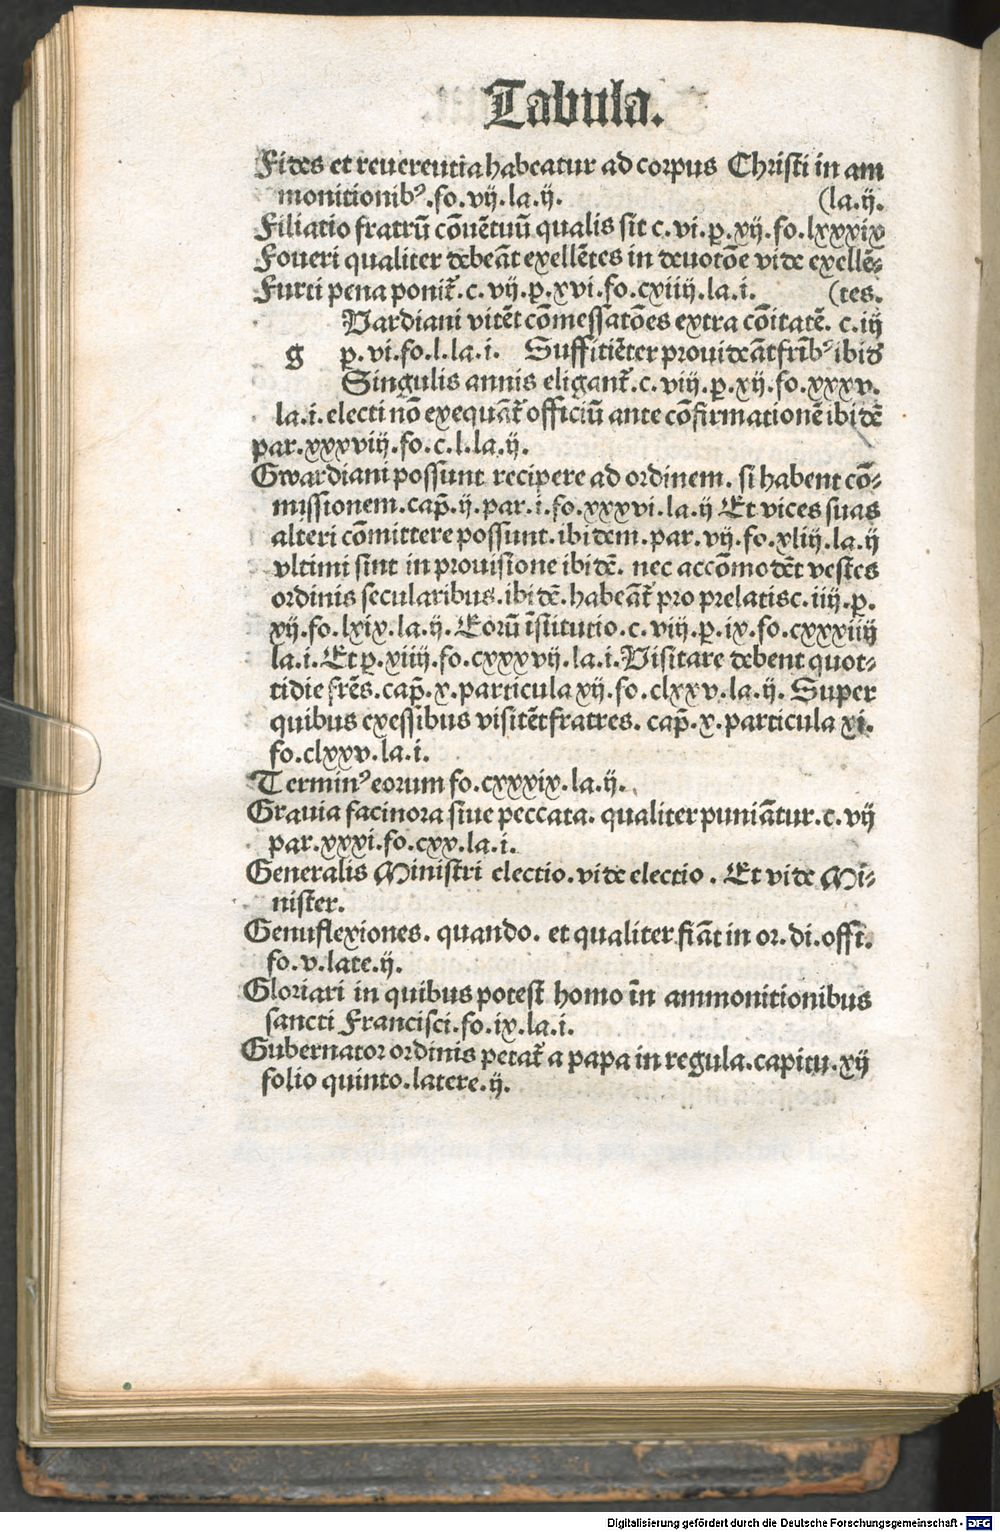 Tabula.
Fides et reuerentia habeatur ad corpus Christi in am
monitionibꝰ.fo.vij.la.ij. (la.ij.
Filiatio fratrū cōuētuū qualis sit c.vi.ꝑ.xij.fo.lxxxix
Foueri qualiter debeāt exellētes in deuotōe vide exellē-
Furti pena ponit̃.c.vij.ꝑ.xvi.fo.cxiiij.la.i. (tes.
Vardiani vitēt cōmessatōes extra cōitatē. c.iij
g ꝑ.vi.fo.l.la.i. Suffitiēter prouideāt fr̄ibꝰ ibid
Singulis annis eligant̃.c.viij.ꝑ.xij.fo.xxxv.
la.i.electi nō exequāt̃ officiū ante cōfirmationē ibidē
par.xxxviij.fo.c.l.la.ij.
Gwardiani possunt recipere ad ordinem. si habent cō-
missionem.cap̄.ij.par.i.fo.xxxvi.la.ij Et vices suas
alteri cōmittere possunt.ibidem.par.vij.fo.xliij.la.ij
vltimi sint in prouisione ibidē. nec accōmodēt vestes
ordinis secularibus.ibidē.habeāt̃ pro prelatis c.iiij.ꝑ.
xij.fo.lxix.la.ij.Eorū īstitutio.c.viij.ꝑ.ix.fo.cxxxiiij
la.i.Et ꝑ.xiiij.fo.cxxxvij.la.i.Visitare debent quot-
tidie fr̄es.cap̄.x.particula xij.fo.clxxv.la.ij. Super
quibus exessibus visitēt fratres. cap̄.x.particula xi.
fo.clxxv.la.i.
Terminꝰ eorum fo.cxxxix.la.ij.
Grauia facinora siue peccata. qualiter puniāt̃ur.c.vij
par.xxxi.fo.cxv.la.i.
Generalis Ministri electio.vide electio. Et vide Mi-
nister.
Genuflexiones. quando. et qualiter fiāt in or.di.offi̅.
fo.v.late.ij.
Gloriari in quibus potest homo īn ammonitionibus
sancti Francisci.fo.ix.la.i.
Gubernator ordinis petat̃ a papa in regula.capitu.xij
folio quinto.latere.ij.
Digitalisierung gefördert durch die Deutsche Forschungsgemeinschaft - DFG